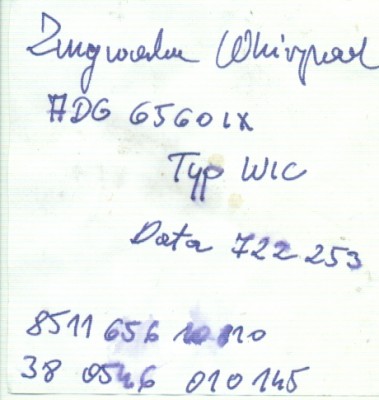 Zmywarka Whirpool
ADG 6560 IX
Typ WIC
Data 722 253
8511 656 10 110
38 0546 010145